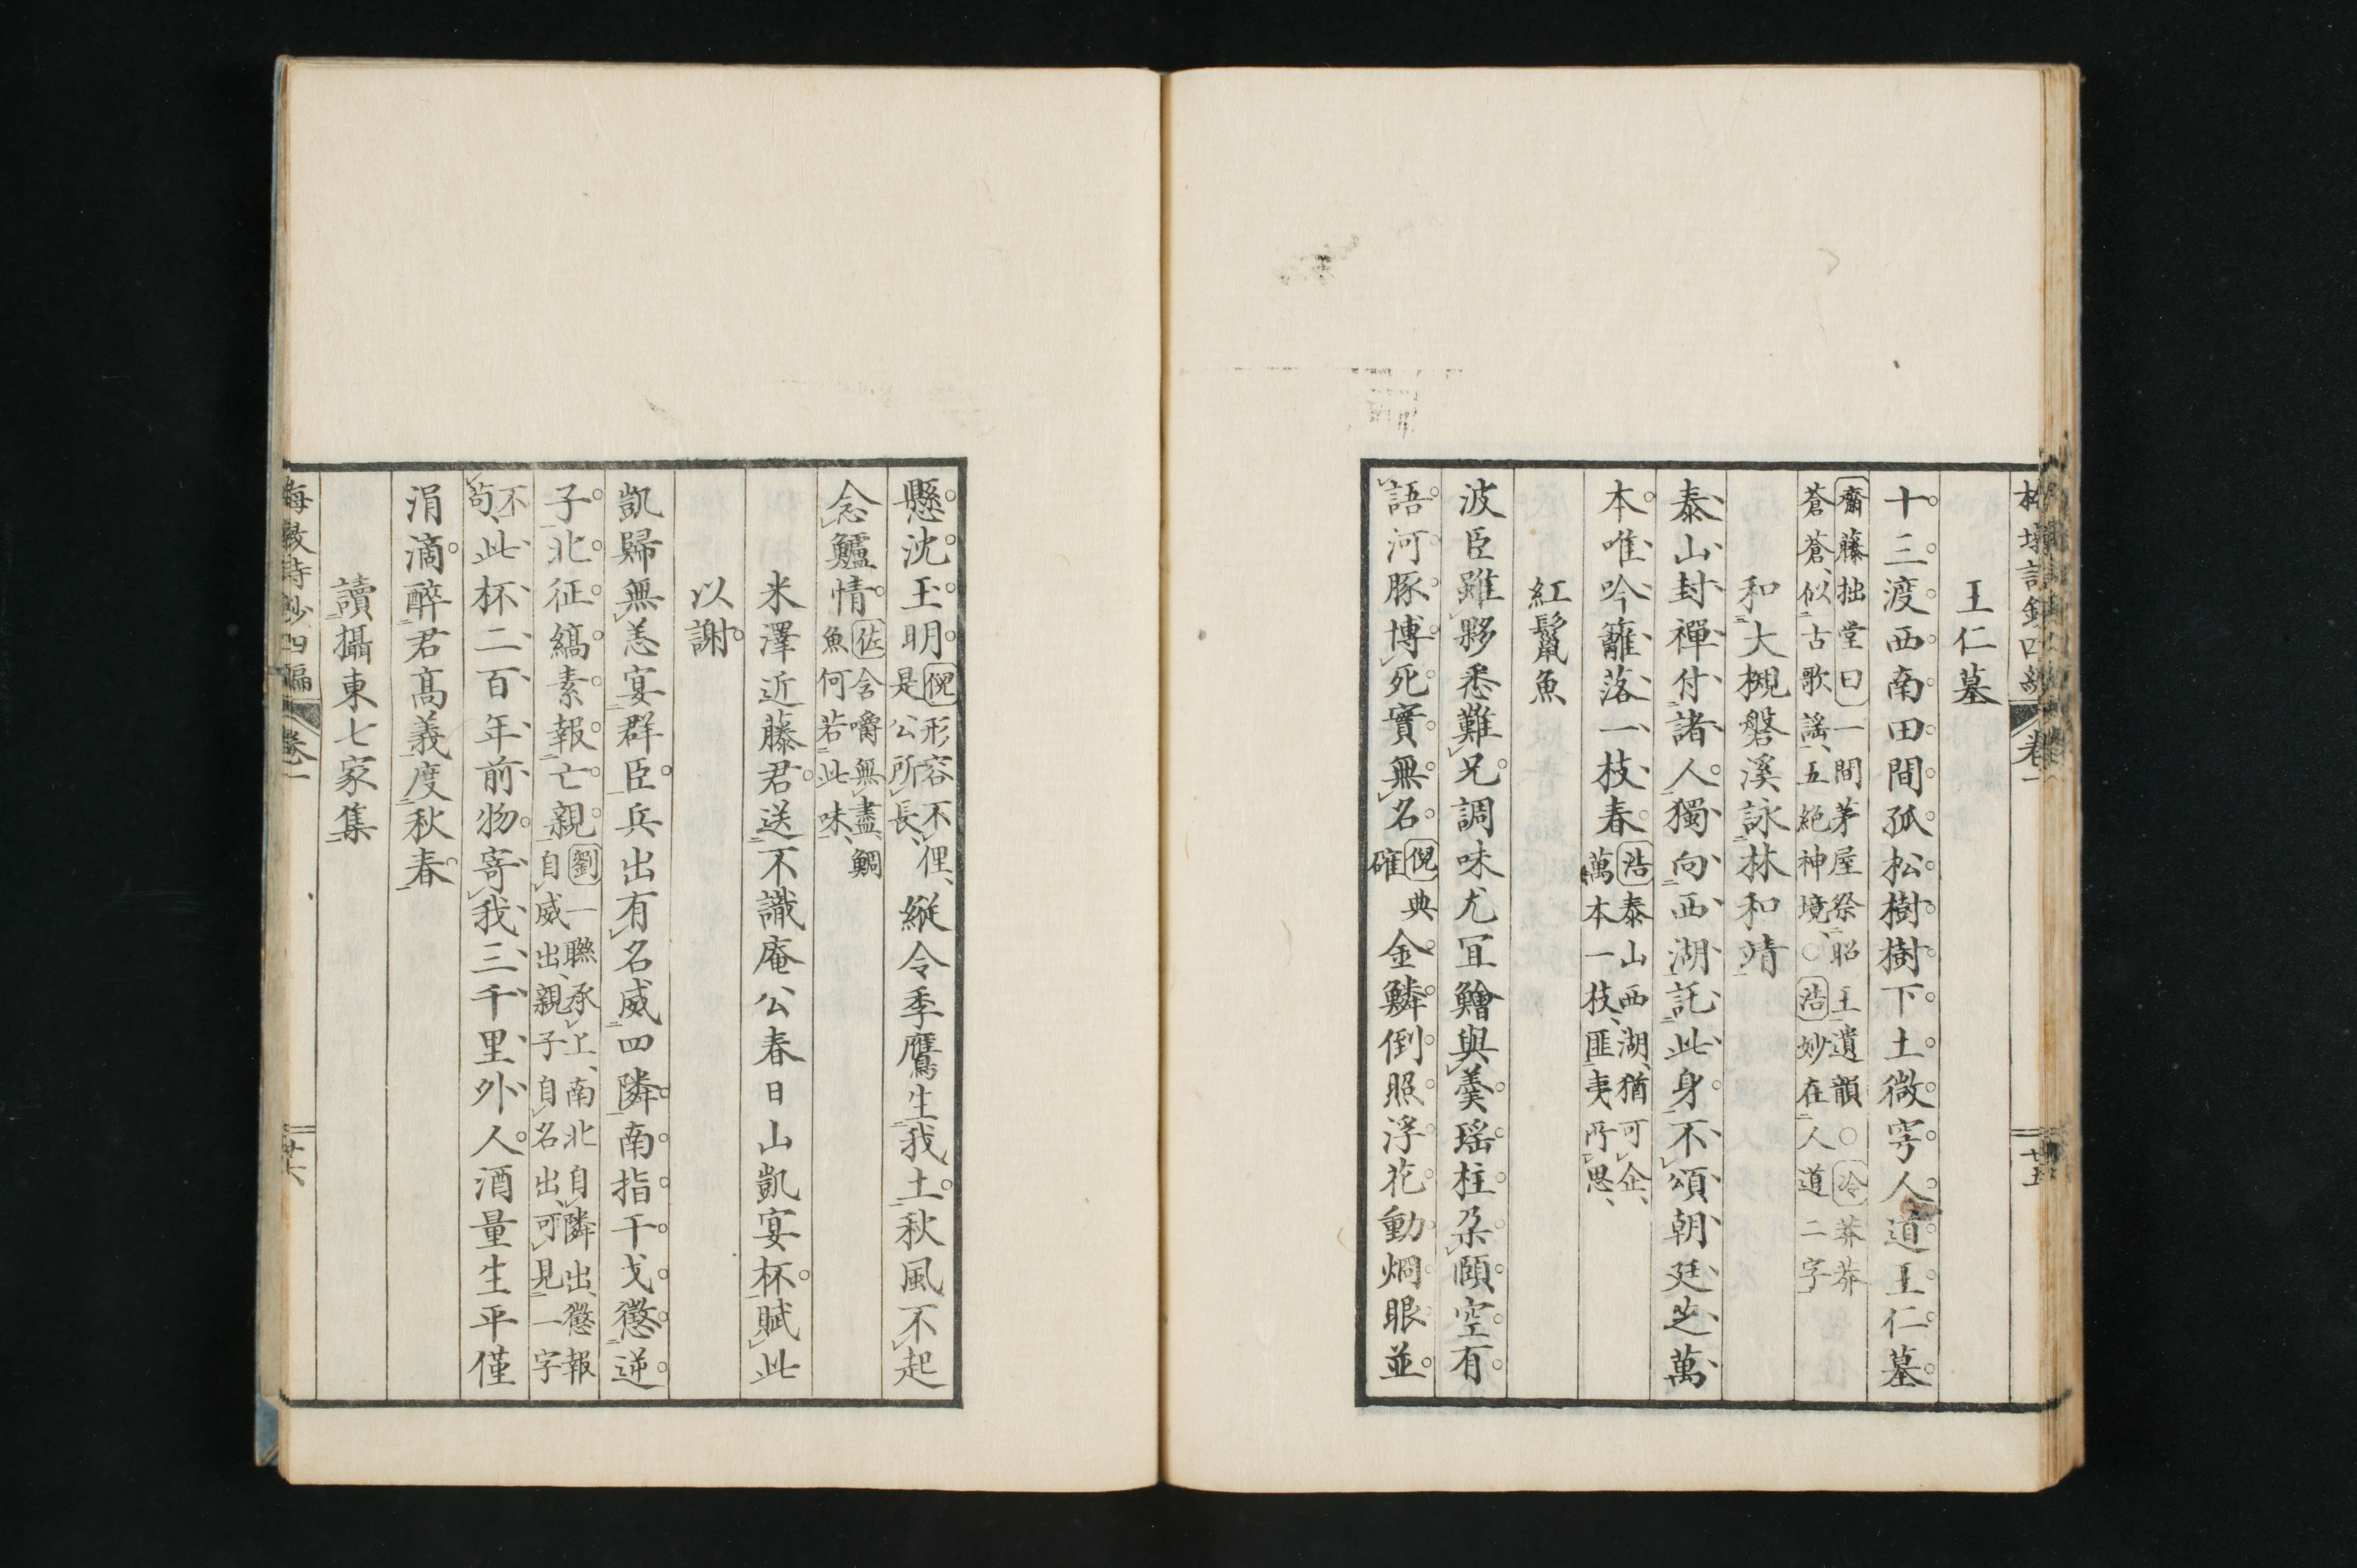 王仁墓
十三渡西南田間孤松樹樹下土微穹人道王仁墓
齋藤拙堂曰一間茅屋祭昭王遺韻○冷莽莽
蒼蒼似古歌謡五絶神境○浩妙在人道二字
和大槻磐溪詠林和靖
泰山封禪付諸人獨向西湖託此身不頌朝廷芝萬
本唯吟籬落一枝春
浩泰山西湖猶可企
萬本一枝匪夷所思
紅鬣魚
波臣雖夥悉難兄調味尤宜鱠與羹瑶柱朶頤空有
語河豚博死實無名
倪典
確
金鱗倒照浮花動烱眼並
懸沈玉明
倪形容不俚
是公所長
縱令季鷹生我土秋風不起
念鱸情
佐含嚼無盡鯛
魚何若此味
米澤近藤君送不識庵公春日山凱宴杯賦此
以謝
凱歸無恙宴群臣兵出有名威四隣南指干戈懲逆
子北征縞素報亡親
劉一聯承上南北自隣出懲報
自威出親子自名出可見一字
不
苟
此杯二百年前物寄我三千里外人酒量生平僅
涓滴醉君髙義度秋春
讀攝東七家集
卷一
廿六